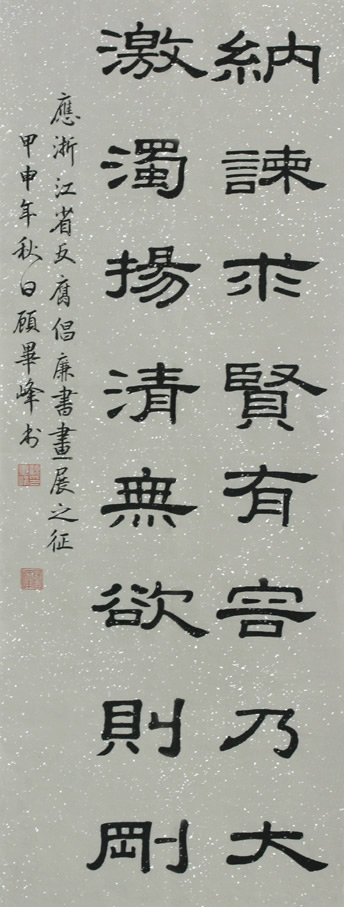 納諫求賢有容乃大
激濁揚清無欲則剛
應浙江省反腐倡廉書畫展之征
甲申年秋日顧畢峰书